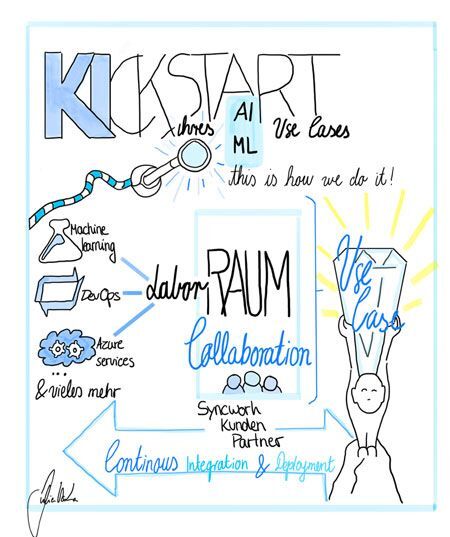 KICKSTART
ihres AI ML Use Cases
this is how we do it!
Machine
learning
DevOps
Azure
services
...
& vieles mehr
LaborRAUM
Collaboration
Syncwork
Kunden
Partner
Use
Case
Continous Integration & Deployment